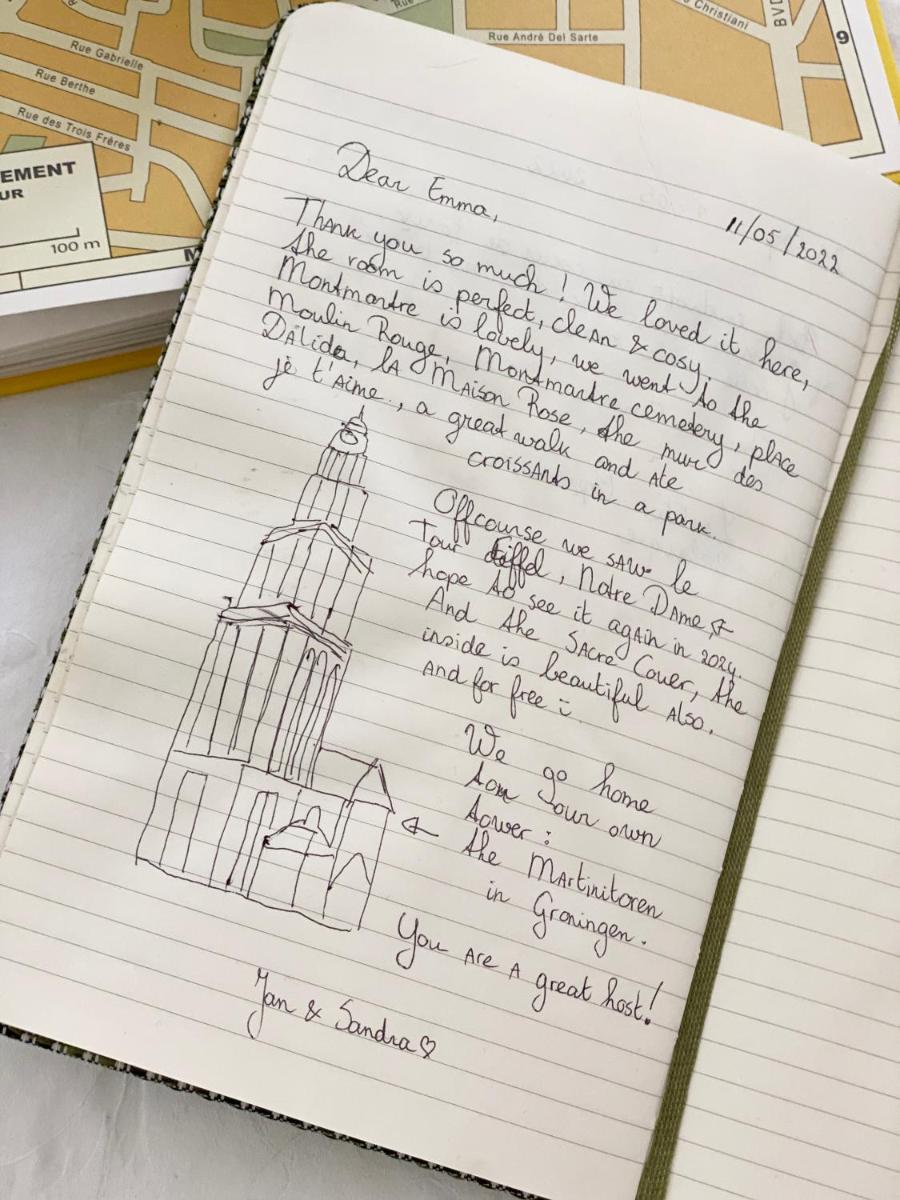 Rue Gabrielle
Rue Berthe
Rue des Trois Frères
Rue André Del Sarte
Christiani
9
EMENT
UR
100 m
M
Dear Emma,
11/05/2022
Thank you so much! We loved it here,
the room is perfect, clean & cosy.
Montmartre is lovely, we went to the
Moulin Rouge, Montmartre cemetery, place
Dalida, la Maison Rose, the mur des
je t'aime, a great walk and ate
croissants in a park.
Offcourse we saw le
Tour Eiffel, Notre Dame &
hope to see it again in 2024.
And the Sacre Couer, the
inside is beautiful also.
and for free :
We go home
to our own
tower:
the Martinitoren
in Groningen.
You are a great host!
Jan & Sandra ♡